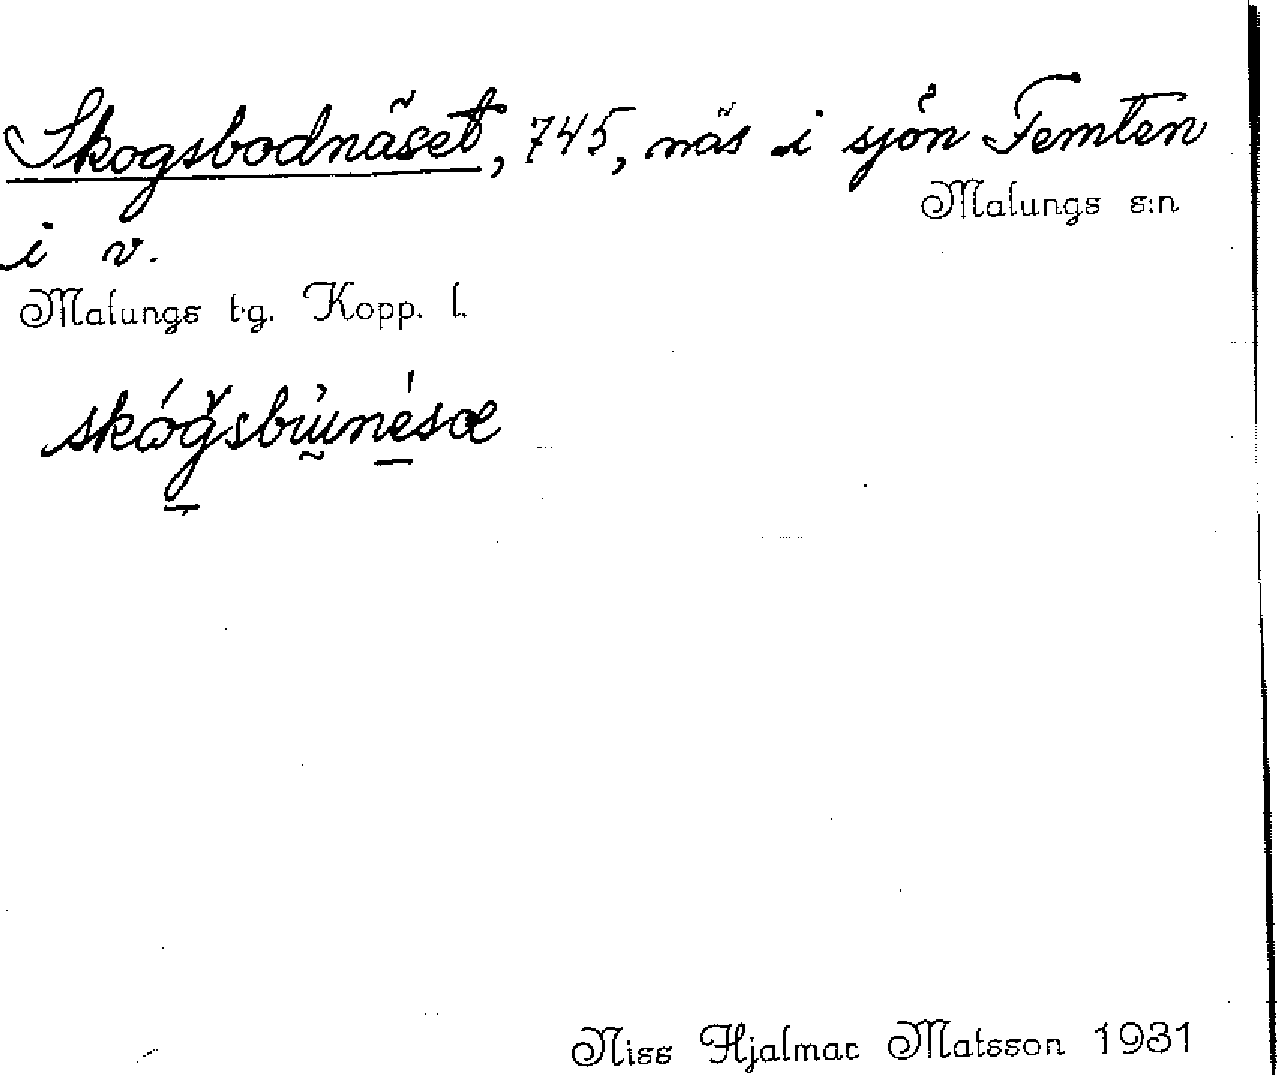 Skogsbodnäset, 745, näs i sjön Femten
Malungs s:n
i v.
Malungs tg. Kopp. l.
Niss Hjalmar Matsson 1931